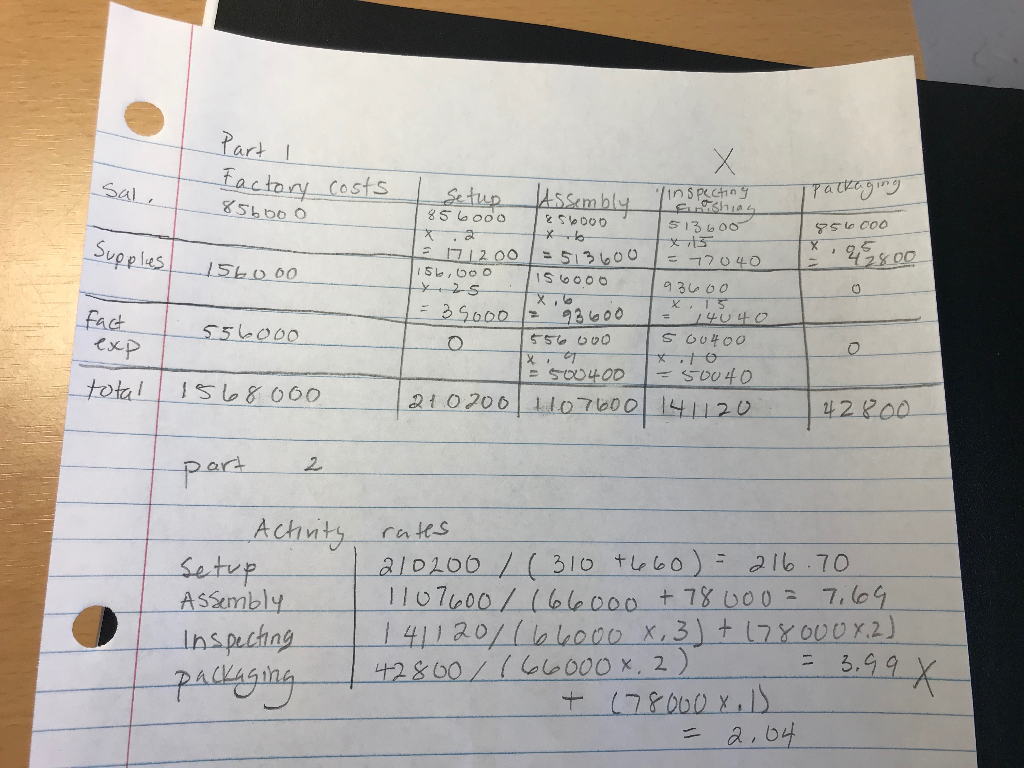 Part 1
X
Factory costs Setup Assembly Inspecting & Finishing packaging
Sal. 856000 856000 856000 513600 856000
x .2 x .6 x .15 x .05
= 171200 = 513600 = 77040 = 42800
Supplies 156000 156,000 156000 93600 0
x .25 x .6 x .15
= 39000 = 93600 = 14040
Fact exp 556000 0 556000 500400 0
x .9 x .10
= 500400 = 50040
total 1568000 210200 1107600 141120 42800
part 2
Activity rates
Setup 210200 / ( 310 + 660 ) = 216.70
Assembly 1107600 / (66000 + 78000 = 7.69
Inspecting 141120 / (66000 x .3) + (78000 x .2)
= 3.99 X
packaging 42800 / (66000 x .2)
+ (78000 x .1)
= 2.04